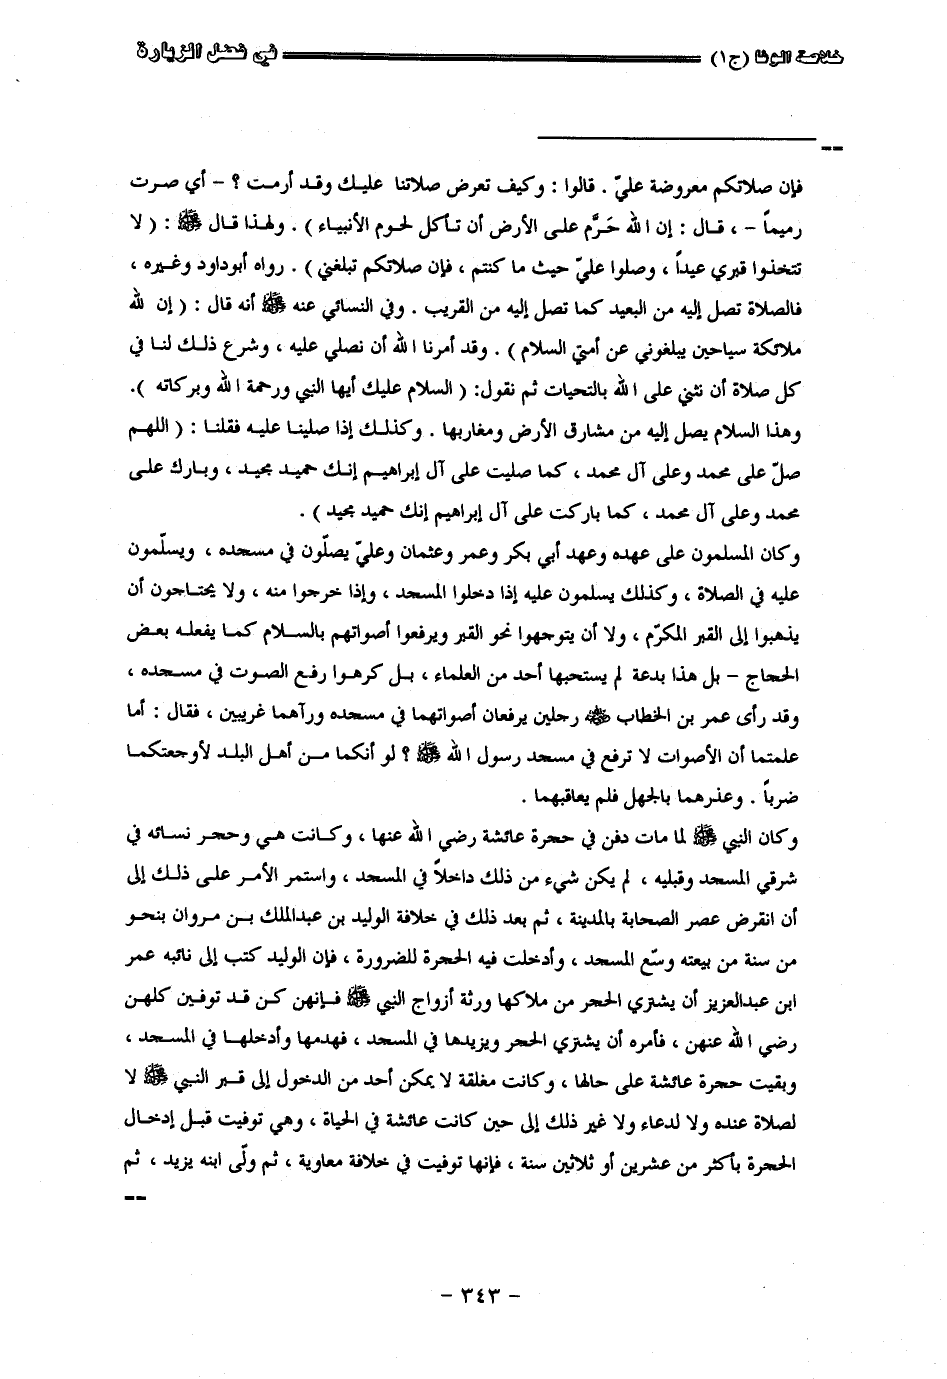 خلاصة الوفا (ج١) في فضل الزيارة
فإن صلاتكم معروضة عليّ . قالوا : وكيف تعرض صلاتنا عليك وقد أرمت ؟ - أي صرت
رميماً - ، قال : إن الله حَرَّم على الأرض أن تأكل لحوم الأنبياء ) . ولهذا قال ﷺ : ( لا
تتخذوا قبري عيداً ، وصلوا عليّ حيث ما كنتم ، فإن صلاتكم تبلغني ) . رواه أبوداود وغيره ،
فالصلاة تصل إليه من البعيد كما تصل إليه من القريب . وفي النسائي عنه ﷺ أنه قال : ( إن لله
ملائكة سياحين يبلغوني عن أمتي السلام ) . وقد أمرنا الله أن نصلي عليه ، وشرع ذلك لنا في
كل صلاة أن نثني على الله بالتحيات ثم نقول: ( السلام عليك أيها النبي ورحمة الله وبركاته ).
وهذا السلام يصل إليه من مشارق الأرض ومغاربها . وكذلك إذا صلينا عليه فقلنا : ( اللهم
صلّ على محمد وعلى آل محمد ، كما صليت على آل إبراهيم إنك حميد مجيد ، وبارك على
محمد وعلى آل محمد ، كما باركت على آل إبراهيم إنك حميد مجيد ) .
وكان المسلمون على عهده وعهد أبي بكر وعمر وعثمان وعليّ يصلّون في مسجده ، ويسلّمون
عليه في الصلاة ، وكذلك يسلمون عليه إذا دخلوا المسجد ، وإذا خرجوا منه ، ولا يحتاجون أن
يذهبوا إلى القبر المكرّم ، ولا أن يتوجهوا نحو القبر ويرفعوا أصواتهم بالسلام كما يفعله بعض
الحجاج - بل هذا بدعة لم يستحبها أحد من العلماء ، بل كرهوا رفع الصوت في مسجده ،
وقد رأى عمر بن الخطاب ﷺ رجلين يرفعان أصواتهما في مسجده ورآهما غريبين ، فقال : أما
علمتما أن الأصوات لا ترفع في مسجد رسول الله ﷺ ؟ لو أنكما من أهل البلد لأوجعتكما
ضرباً . وعذرهما بالجهل فلم يعاقبهما .
وكان النبي ﷺ لما مات دفن في حجرة عائشة رضي الله عنها ، وكانت هي وحجر نسائه في
شرقي المسجد وقبليه ، لم يكن شيء من ذلك داخلاً في المسجد ، واستمر الأمر على ذلك إلى
أن انقرض عصر الصحابة بالمدينة ، ثم بعد ذلك في خلافة الوليد بن عبدالملك بن مروان بنحو
من سنة من بيعته وسّع المسجد ، وأدخلت فيه الحجرة للضرورة ، فإن الوليد كتب إلى نائبه عمر
ابن عبدالعزيز أن يشتري الحجر من ملاكها ورثة أزواج النبي ﷺ فإنهن كن قد توفين كلهن
رضي الله عنهن ، فأمره أن يشتري الحجر ويزيدها في المسجد ، فهدمها وأدخلها في المسجد ،
وبقيت حجرة عائشة على حالها ، وكانت مغلقة لا يمكن أحد من الدخول إلى قبر النبي ﷺ لا
لصلاة عنده ولا لدعاء ولا غير ذلك إلى حين كانت عائشة في الحياة ، وهي توفيت قبل إدخال
الحجرة بأكثر من عشرين أو ثلاثين سنة ، فإنها توفيت في خلافة معاوية ، ثم ولّى ابنه يزيد ، ثم
- ٣٤٣ -